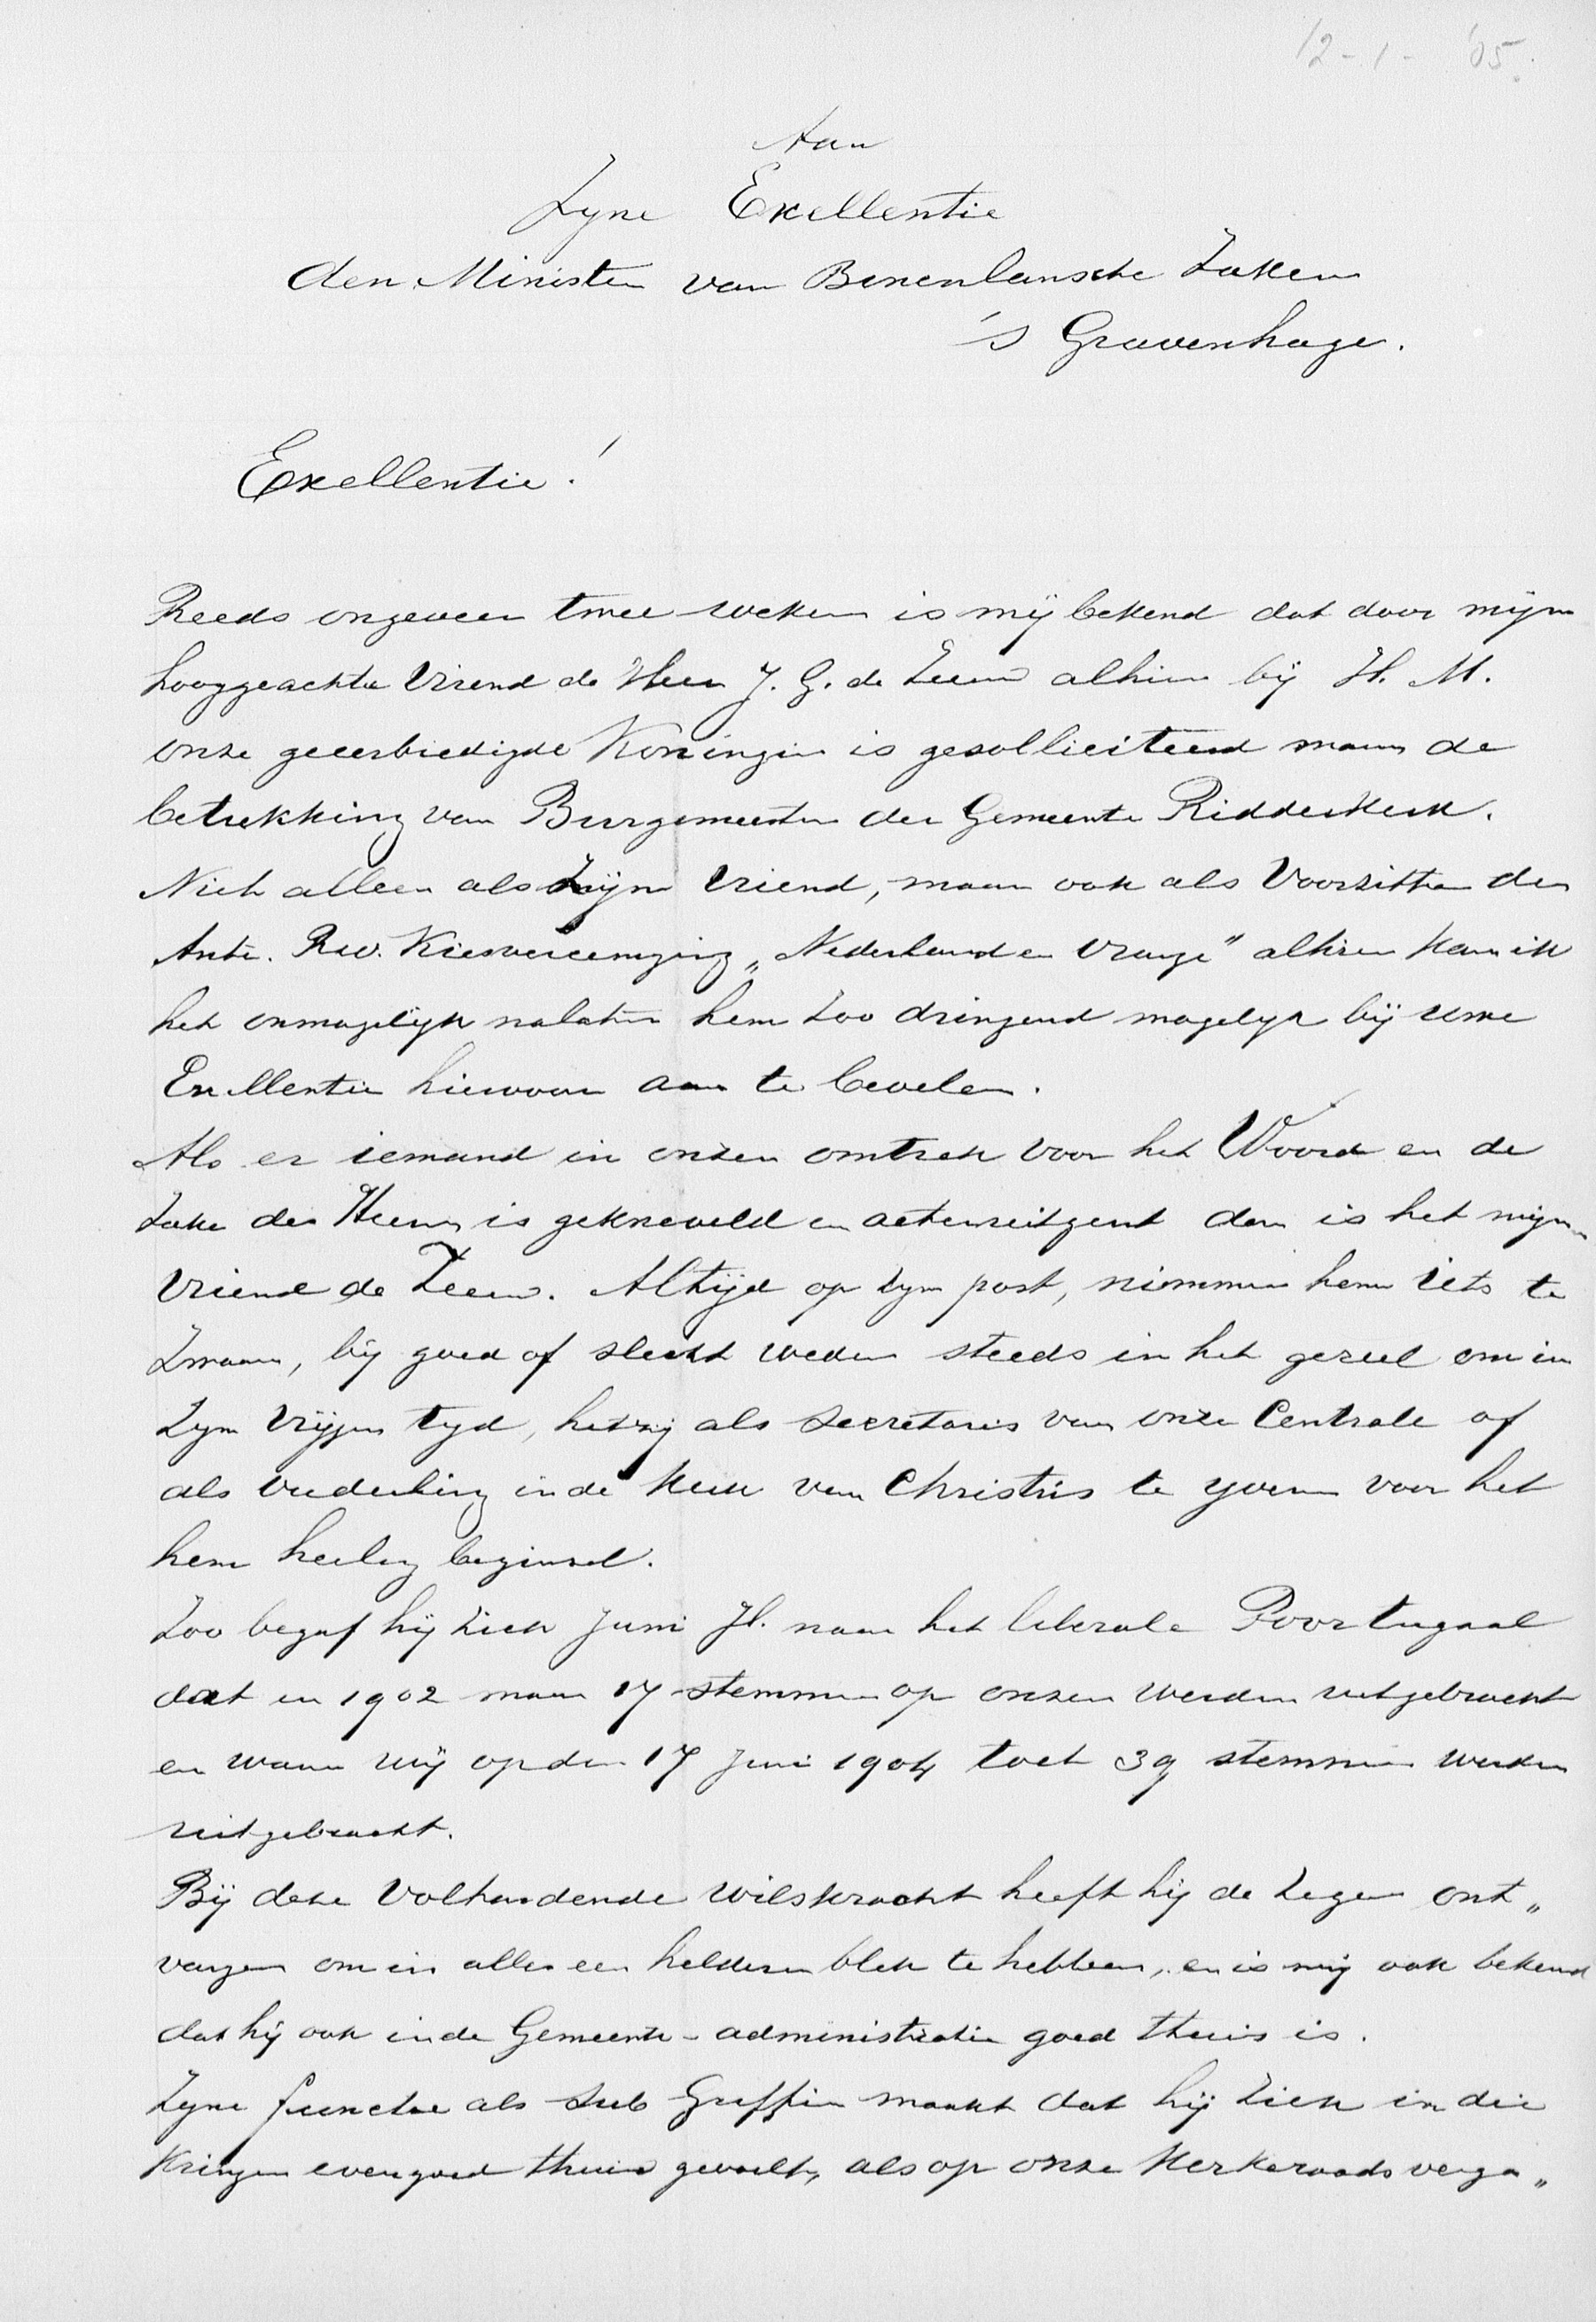 12-1-'05.
Aan
Zyne Exellentie
den Minister van Binenlansche Zaken
's Gravenhage.
Exellentie!
Reeds ongeveer twee weken is mij bekend dat door mijn
hooggeachte Vriend de Heer J. G. de Zeeuw alhier bij H. M.
onze geëerbiedigde Koningin is gesolliciteerd naar de
betrekking van Burgemeester der Gemeente Ridderkerk.
Niet alleen als zijn Vriend, maar ook als Voorzitter der
Anti. Rev. Kiesvereeniging „Nederland en Oranje" alhier kan ik
het onmogelijk nalaten hem zoo dringend mogelyk bij Uwe
Exellentie hiervoor aan te bevelen.
Als er iemand in onzen omtrek voor het Woord en de
Zake des Heeren is gekneveld en achteruitgezet dan is het mijn
Vriend de Zeeuw. Altijd op zyn post, nimmer hem iets te
Zwaar, bij goed of slecht weder steeds in het gereel om in
Zyn Vrijen tyd, hetzij als Secretaris van onze Centrale of
als ouderling in de Kerk van Christus te yveren voor het
hem heilig beginsel.
Zoo begaf hij zich Juni Jl. naar het liberale Poortugaal
dat in 1902 maar 17 stemmen op onzen werden uitgebracht
en waar wij op den 17 Juni 1904 toch 39 stemmen werden
uitgebracht.
Bij deze Volhardende wilskracht heeft hij de Zegen ont„
vangen om in alles een helderen blik te hebben, en is mij ook bekend
dat hij ook in de Gemeente-administratie goed thuis is.
Zyne functie als Sub Griffier maakt dat hij zich in die
Kringen evengoed thuis gevoelt, als op onze Kerkeraads verga„